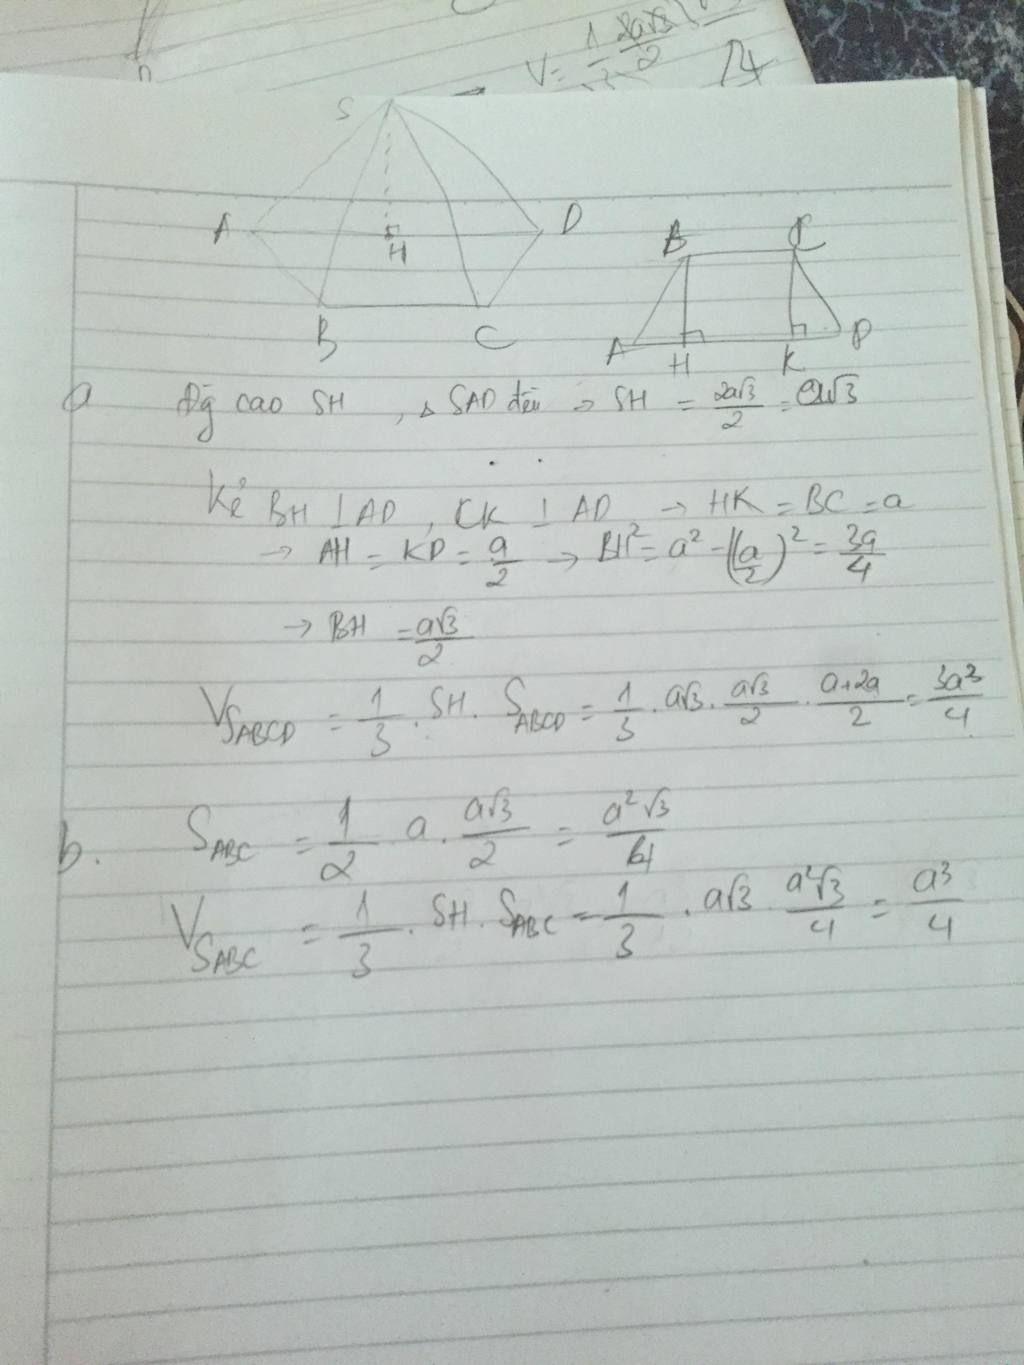 V = 1/3 . 2a√3/2
S
A H D
B C
B C
A H K D
a Đg cao SH , Δ SAD đều → SH = 2a√3/2 = a√3
Kẻ BH ⊥ AD , CK ⊥ AD → HK = BC = a
→ AH = KD = a/2 → BH² = a² - (a/2)² = 3a/4
→ BH = a√3/2
V_SABCD = 1/3 . SH . S_ABCD = 1/3 . a√3 . a√3/2 . a+2a/2 = 3a³/4
b. S_ABC = 1/2 a . a√3/2 = a²√3/4
V_SABC = 1/3 . SH . S_ABC = 1/3 . a√3 . a²√3/4 = a³/4